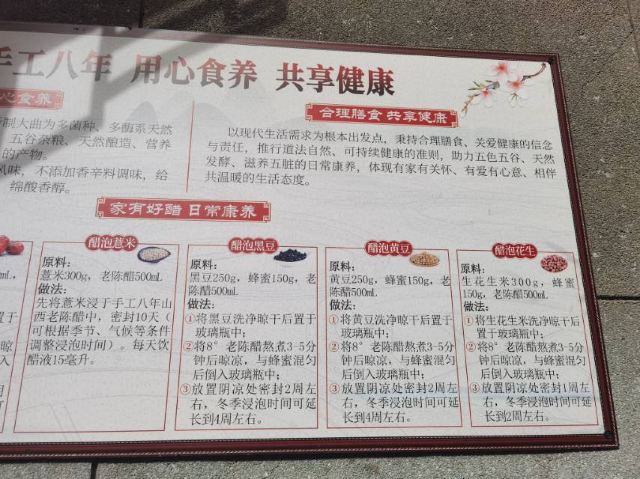 手工八年 用心食养 共享健康
心食养
制大曲为多菌种、多酶系天然
五谷杂粮、天然酿造、营养
的产物。
风味，不添加香辛料调味，给
绵酸香醇。
合理膳食 共享健康
以现代生活需求为根本出发点，秉持合理膳食、关爱健康的信念
与责任，推行道法自然、可持续健康的准则，助力五色五谷、天然
发酵、滋养五脏的日常康养，体现有家有关怀、有爱有心意、相伴
共温暖的生活态度。
家有好醋 日常康养
醋泡薏米
原料：
薏米300g，老陈醋500mL
做法：
先将薏米浸于手工八年山
西老陈醋中，密封10天（
可根据季节、气候等条件
调整浸泡时间）。每天饮
醋液15毫升。
醋泡黑豆
原料：
黑豆250g，蜂蜜150g，老
陈醋500mL
做法：
①将黑豆洗净晾干后置于
玻璃瓶中；
②将8°老陈醋熬煮3-5分
钟后晾凉，与蜂蜜混匀
后倒入玻璃瓶中；
③放置阴凉处密封2周左
右，冬季浸泡时间可延
长到4周左右。
醋泡黄豆
原料：
黄豆250g，蜂蜜150g，老
陈醋500mL
做法：
①将黄豆洗净晾干后置于
玻璃瓶中；
②将8°老陈醋熬煮3-5分
钟后晾凉，与蜂蜜混匀
后倒入玻璃瓶中；
③放置阴凉处密封2周左
右，冬季浸泡时间可延
长到4周左右。
醋泡花生
原料：
生花生米300g，蜂蜜
150g，老陈醋500mL
做法：
①将生花生米洗净晾干后
置于玻璃瓶中；
②将8°老陈醋熬煮3-5分
钟后晾凉，与蜂蜜混匀
后倒入玻璃瓶中；
③放置阴凉处密封1周左
右，冬季浸泡时间可延
长到2周左右。